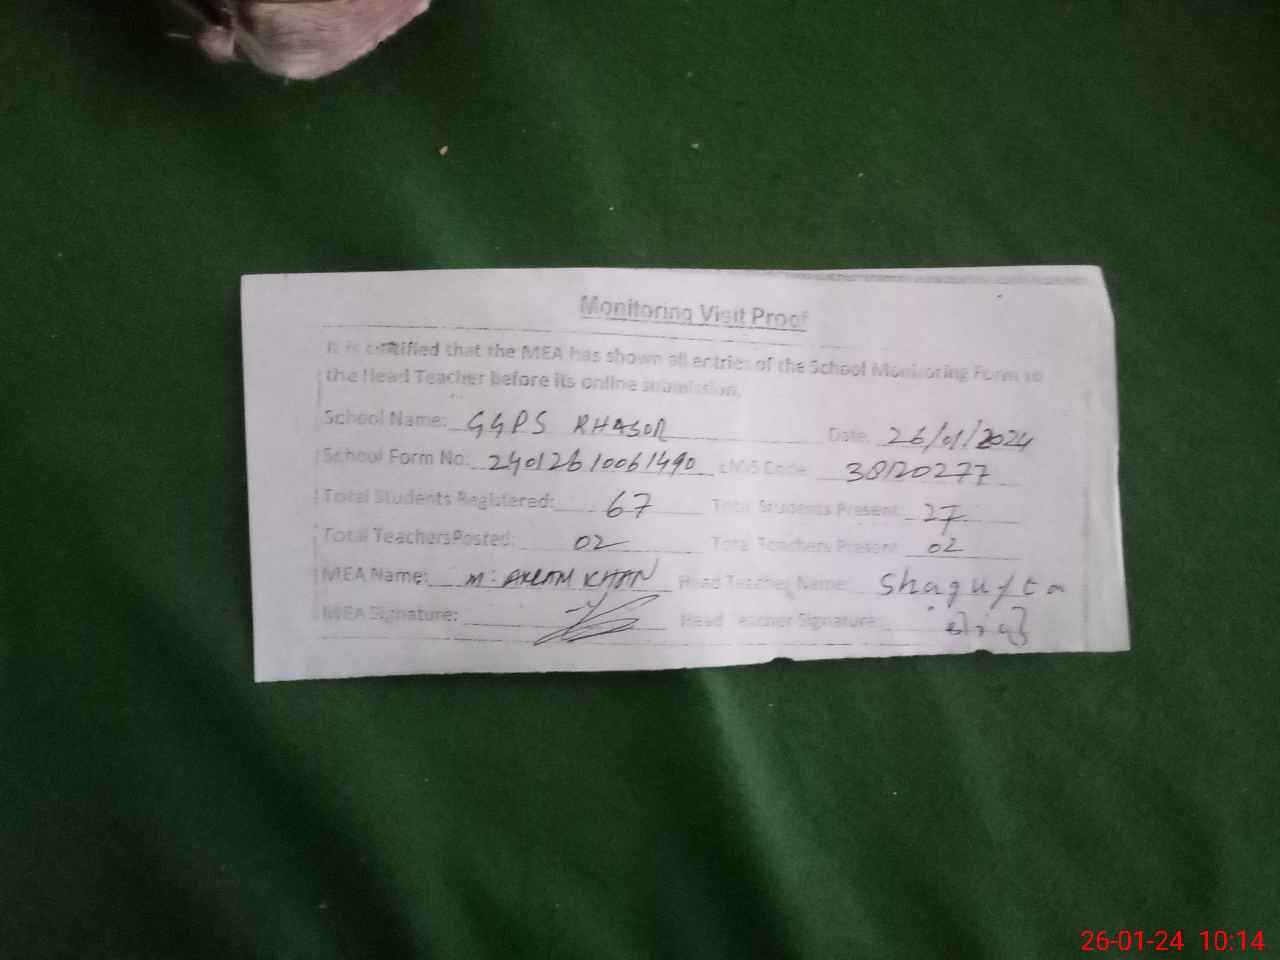 Monitoring Visit Proof
It is certified that the MEA has shown all entries of the School Monitoring Form to
the Head Teacher before its online submission.
School Name: GGPS RHASOR Date: 26/01/2024
School Form No: 24012610061490 EMIS Code: 38120277
Total Students Registered: 67 Total Students Present: 27
Total Teachers Posted: 02 Total Teachers Present: 02
MEA Name: M. AKRAM KHAN Head Teacher Name: Shagufta
MEA Signature: Head Teacher Signature:
26-01-24 10:14